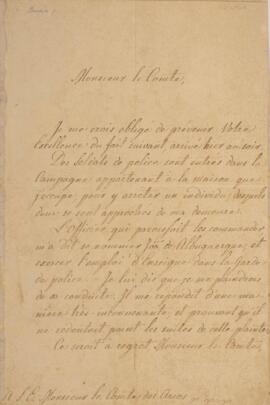 Monsieur le Comte,
Je me crois obligé de prévenir Votre
Excellence du fait suivant, arrivé hier au soir.
Des soldats de police sont entrés dans la
Campagne appartenant à la maison que
j'occupe, pour y arrêter un individu, lesquels
donc se sont approchés de ma demeure.
L'Officier, qui paraissait les commander
m'a dit se nommer João de Albuquerque, et
exercer l'emploi d'Enseigne dans la Garde
de police. Je lui dis que je me plaindrais
de sa conduite; Il me répondit d'une ma-
nière très inconvenante, et prouvant qu'il
ne redoutait point les suites de cette plainte.
Ce serait à regret Monsieur le Comte,
A S. E. Monsieur le Comte des Arcos